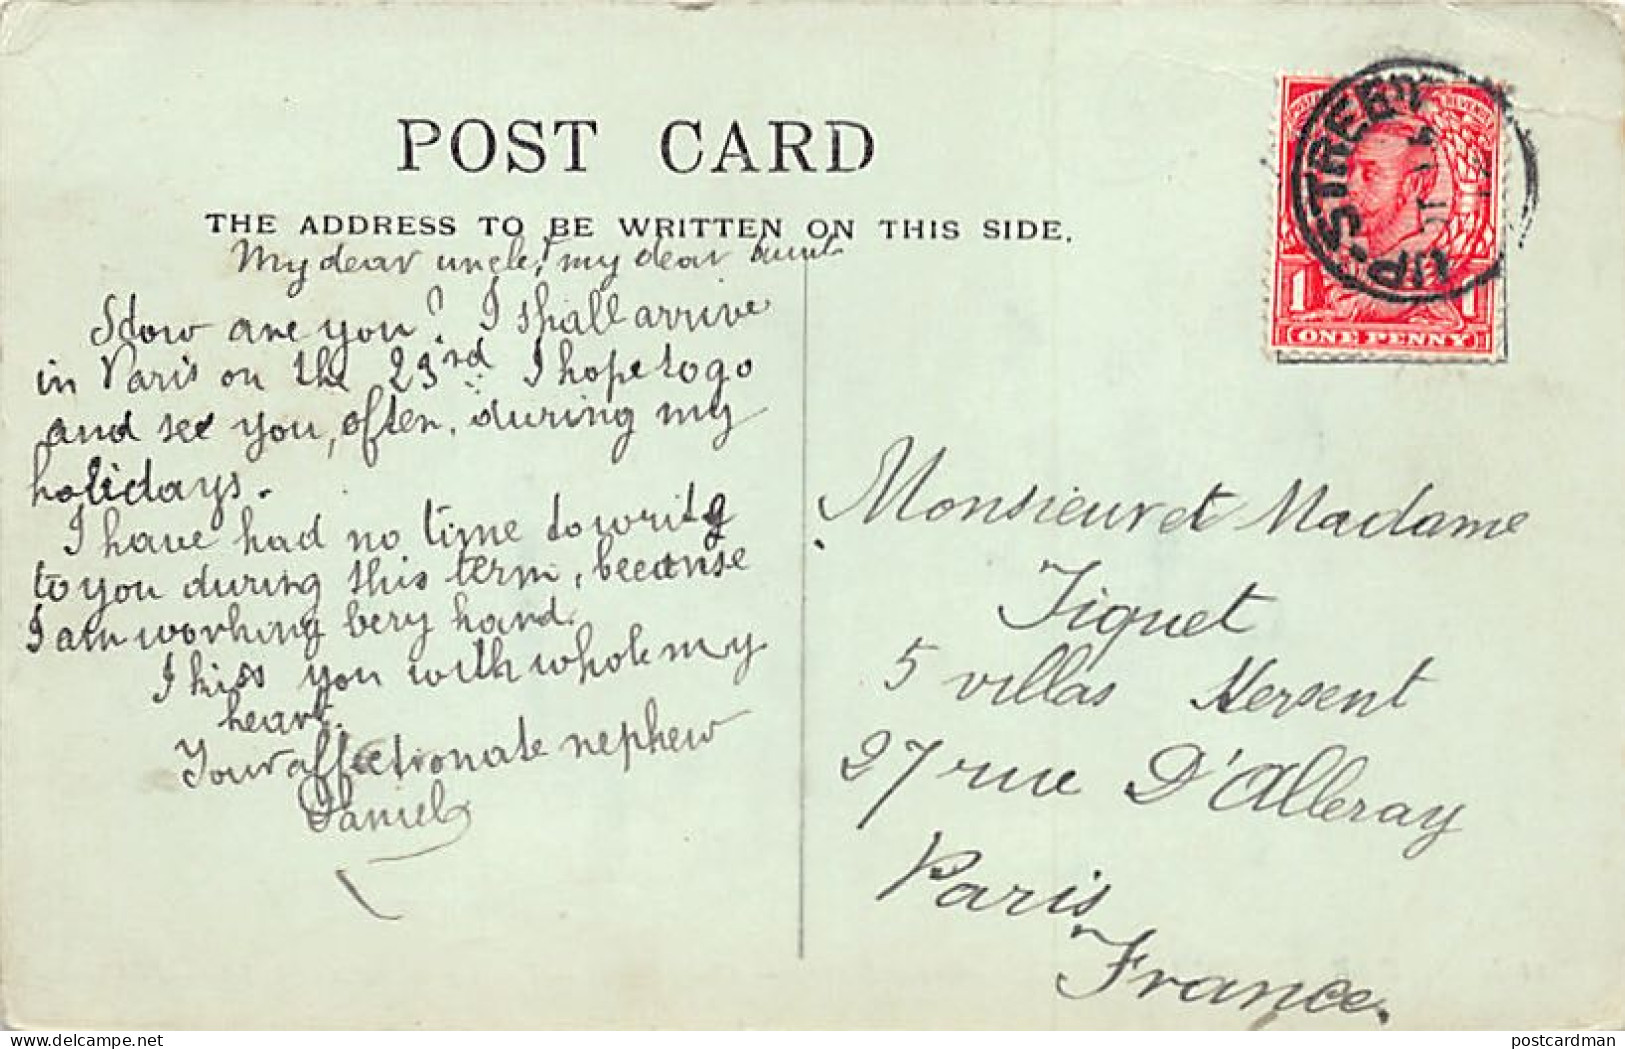 POST CARD
THE ADDRESS TO BE WRITTEN ON THIS SIDE.
My dear uncle, my dear aunt
How are you? I shall arrive
in Paris on the 23rd I hope to go
and see you, often, during my
holidays.
I have had no time to write
to you during this term, because
I am working bery hard.
I kiss you with whole my
heart.
Your affectionate nephew
Daniel
UP. STREET
ONE PENNY
1 1
Monsieur et Madame
Tiquet
5 villas Hersent
27 rue D'Alleray
Paris
France.
delcampe.net
postcardman